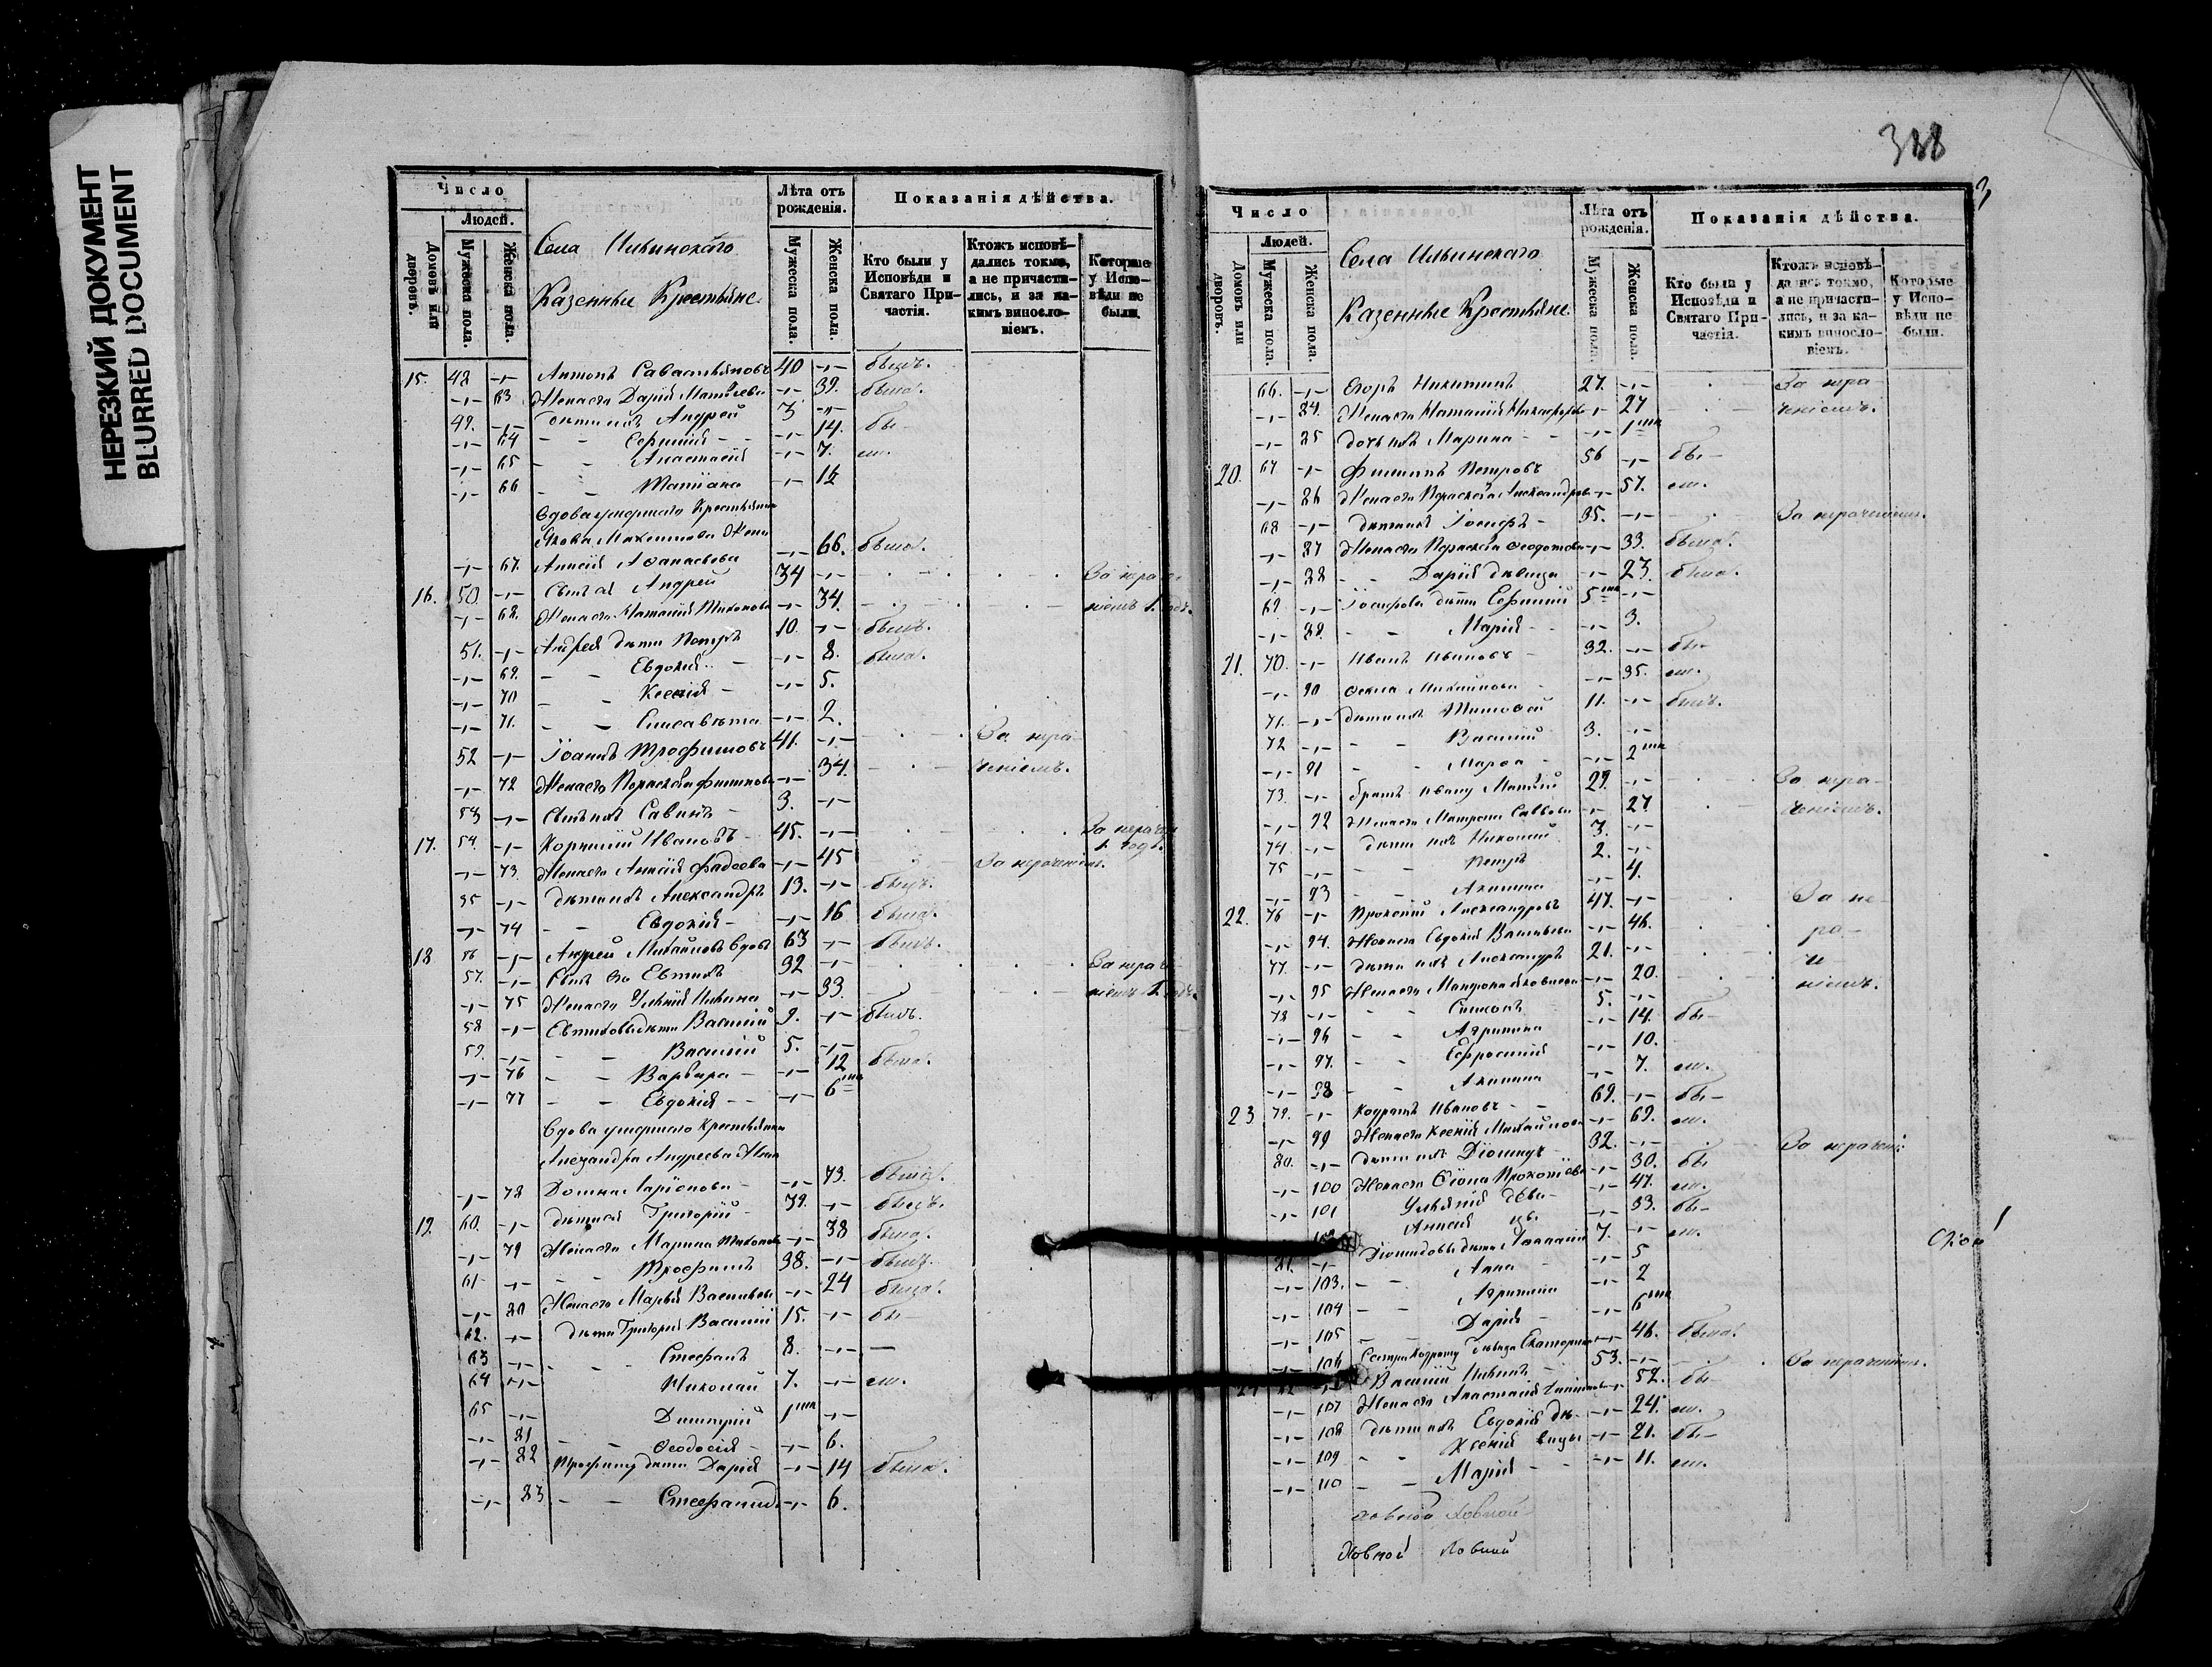 НЕРЕЗКИЙ ДОКУМЕНТ
BLURRED DOCUMENT
Число
Людей.
Домовъ или дворовъ.
Мужеска пола.
Женска пола.
Села Ильинскаго
Казенные Крестьяне.
Лѣта отъ рожденія.
Мужеска пола.
Женска пола.
Показанія дѣйства.
Кто были у Исповѣди и Святаго Причастія.
Ктожъ исповѣдались токмо, а не причастились, и за какимъ винословіемъ.
Которые у Исповѣди не были.
15. 48 -,- Антонъ Савастьяновъ 40 -,- былъ.
-,- 63 Жена его Дарія Матѳѣева -,- 39. была.
49. -,- дѣти ихъ Андрей 3 -,-
-,- 64 - - Евфимія - - -,- 14. бы-
-,- 65 - - Анастасія -,- 7. ли.
-,- 66 - - Татіана -,- 12
Вдова умершаго Крестьянина
Якова Максимова Жена
-,- 67. Аннсія Аѳанасьева -,- 66. была.
16. 50. -,- Сынъ ея Андрей 34 -,- За нераче-
-,- 68. Жена его Наталія Тихонова -,- 34. ніемъ 1. годъ.
51. -,- Андрея дѣти Петръ 10. -,- былъ.
-,- 69. - - Евдокія -,- 8. была.
-,- 70 - - Ксенія - -,- 5.
-,- 71. - - Елисавета -,- 2.
52 -,- Іоаннъ Трофимовъ 41. -,- За нера-
-,- 72 Жена его Параскева Филипова -,- 34. ченіемъ.
53 -,- Сынъ ихъ Савинъ - 3. -,-
17. 54. -,- Корнилій Ивановъ 45. -,- За нераче 1. годъ.
-,- 73. Жена его Аннсія Фадеева -,- 45 За нераченіем.
55 -,- дѣти ихъ Александръ 13. -,- былъ.
-,- 74 - - Евдокія - -,- 16 была.
18 56 -,- Андрей Михайловъ вдовъ 63 -,- былъ.
57. -,- Сынъ его Евтихъ 32 -,- За нераче-
-,- 75 Жена его Ульянія Ильина -,- 33. ніемъ 1. годъ.
58 -,- Евтиховы дѣти Василій 9. -,- былъ.
59. -,- - - Василій 5. -,-
-,- 76 - - Варвара - -,- 12 была.
-,- 77 - - Евдокія - - -,- 6 мц
Вдова умершаго Крестьянина
Александра Андреева Жена
-,- 78 Домна Ларіонова -,- 73. была.
19. 60. -,- дѣти ея Григорій - 39. -,- былъ.
-,- 79 Жена его Марина Тихонова -,- 38 была.
61 -,- - - Трофимъ 38. -,- былъ.
-,- 80 Жена его Марья Васильева -,- 24 была.
62. -,- Дѣти Григорія Василій 15. -,- бы
63 -,- - - Стефанъ 8. -,- —
64 -,- Николай 7. -,- ли.
65 -,- Дмитрій 1 мц -,-
-,- 81 - - Ѳеодосія - -,- 6.
-,- 82 Трофиму дѣти Дарія -,- 14 была.
-,- 83 - - Стефанида -,- 6.
388
3
Число
Людей.
Домовъ или дворовъ.
Мужеска пола.
Женска пола.
Села Ильинскаго
Казенные Крестьяне.
Лѣта отъ рожденія.
Мужеска пола.
Женска пола.
Показанія дѣйства.
Кто были у Исповѣди и Святаго Причастія.
Ктожъ исповѣдались токмо, а не причастились, и за какимъ винословіемъ.
Которые у Исповѣди не были.
66. -,- Егоръ Никитинъ 27. -,- За нера-
-,- 84. Жена его Наталія Никифорова -,- 27 ченіемъ.
-,- 85 дочь ихъ Марина - - -,- 1 мц
20. 67 -,- Филипъ Петровъ 56 -,- бы-
-,- 86 Жена его Параскева Александрова -,- 57. ли.
68 -,- дѣти ихъ Іосифъ - 35. -,- За нераченіем.
-,- 87 Жена его Параскева Ѳеодотова -,- 33. была.
-,- 88 - - Дарія дѣвица -,- 23. была.
69. -,- Іосифовы дѣти Евфимій 5 мц -,-
-,- 89. - - Марія - - -,- 3.
21. 70. -,- Иванъ Ивановъ - 32. -,- бы-
-,- 90 Ѳекла Михайлова - -,- 35. ли.
71. -,- дѣти ихъ Тимоѳей 11. -,- былъ.
72 -,- - - Василій 3. -,-
-,- 91 - - Марѳа - -,- 2 мц
73. -,- братъ Ивану Матѳій 29. -,- За нера-
-,- 92 Жена его Матрона Саввова -,- 27 ченіемъ.
74. -,- дѣти ихъ Николай 3. -,-
75 -,- - - Петръ 2. -,-
-,- 93 - - Акилина -,- 4.
22. 76 -,- Прокопій Александровъ 47. -,- За не-
-,- 94. Жена его Евдокія Васильева -,- 46. ра-
77. -,- дѣти ихъ Александръ 21. -,- че-
-,- 95 Жена его Матрона -,- 20. ніемъ.
78 -,- - - Симеонъ 5. -,-
-,- 96 - - Агрипина -,- 14. бы-
-,- 97. - - Ефросинія -,- 10.
-,- 98 - - Акилина -,- 7. ли.
23 79. -,- Кодратъ Ивановъ - - 69. -,- бы-
-,- 99 Жена его Ксенія Михайлова -,- 69. ли.
80. -,- дѣти ихъ Діомидъ 32. -,- За нерачені
-,- 100 Жена его Прокопіева -,- 30. бы
-,- 101 Ульянія дѣви- -,- 47. ли.
Аннсія цы -,- 33. бы-
81. -,- Діомидовы дѣти 7. -,- ли.
-,- 103. - - Анна - -,- 5
-,- 104 - - Агрипина -,- 2
-,- 105 - - Дарія - -,- 6 мц
-,- 106 Сестра Кодрату дѣвица Екатерина -,- 46. была.
24 82 -,- Василій Ильинъ - 53. -,- За нераченіем.
-,- 107 Жена его Анастасія -,- 52. бы-
-,- 108 дѣти ихъ Евдокія дѣ- -,- 24. ли.
-,- 109 - - Ксенія вицы -,- 21. бы-
-,- 110 - - Марія - - -,- 11. ли.